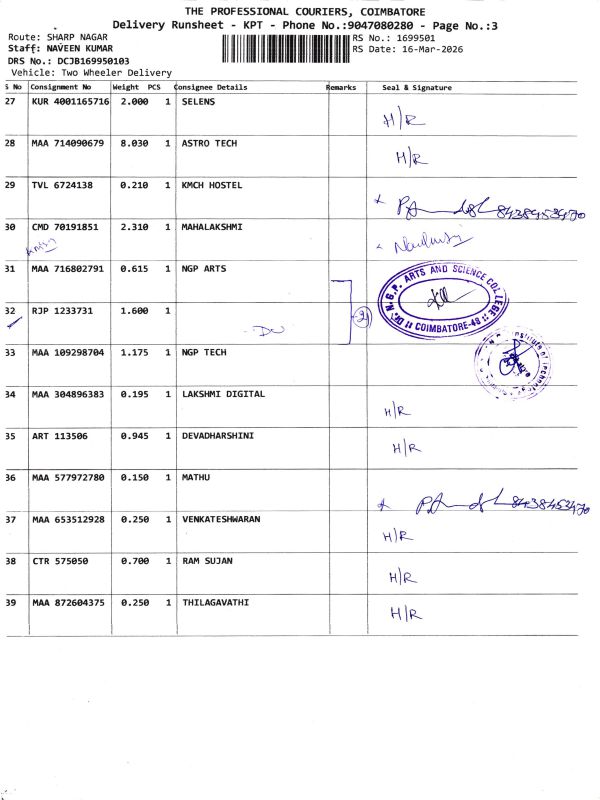 THE PROFESSIONAL COURIERS, COIMBATORE
Delivery Runsheet - KPT - Phone No.:9047080280 - Page No.:3
Route: SHARP NAGAR RS No.: 1699501
Staff: NAVEEN KUMAR RS Date: 16-Mar-2026
DRS No.: DCJB169950103
Vehicle: Two Wheeler Delivery
S No Consignment No Weight PCS Consignee Details Remarks Seal & Signature
27 KUR 4001165716 2.000 1 SELENS H/R
28 MAA 714090679 8.030 1 ASTRO TECH H/R
29 TVL 6724138 0.210 1 KMCH HOSTEL 8438453470
30 CMD 70191851 2.310 1 MAHALAKSHMI
31 MAA 716802791 0.615 1 NGP ARTS
Dr. N.G.P. ARTS AND SCIENCE COLLEGE COIMBATORE-48
32 RJP 1233731 1.600 1
33 MAA 109298704 1.175 1 NGP TECH
34 MAA 304896383 0.195 1 LAKSHMI DIGITAL H/R
35 ART 113506 0.945 1 DEVADHARSHINI H/R
36 MAA 577972780 0.150 1 MATHU 8438453470
37 MAA 653512928 0.250 1 VENKATESHWARAN H/R
38 CTR 575050 0.700 1 RAM SUJAN H/R
39 MAA 872604375 0.250 1 THILAGAVATHI H/R